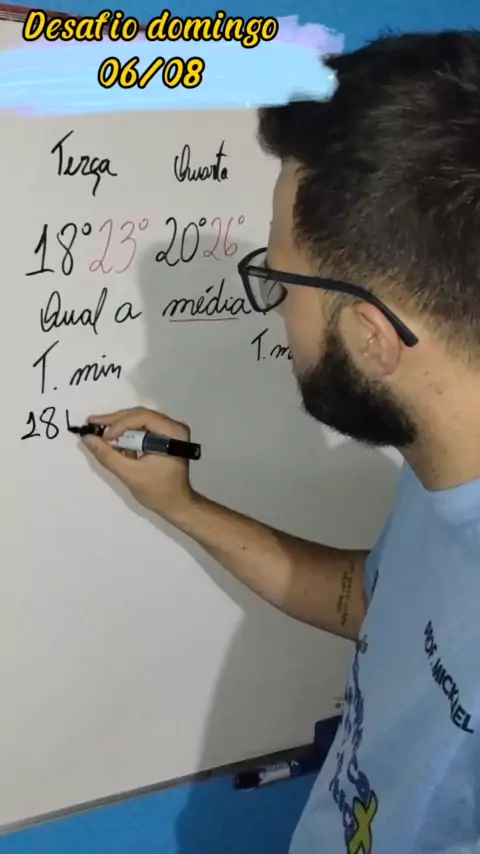 Desafio domingo
06/08
Terça Quarta
18° 23° 20° 26°
Qual a média
T. min T. m
18
PROF. MICKIEL